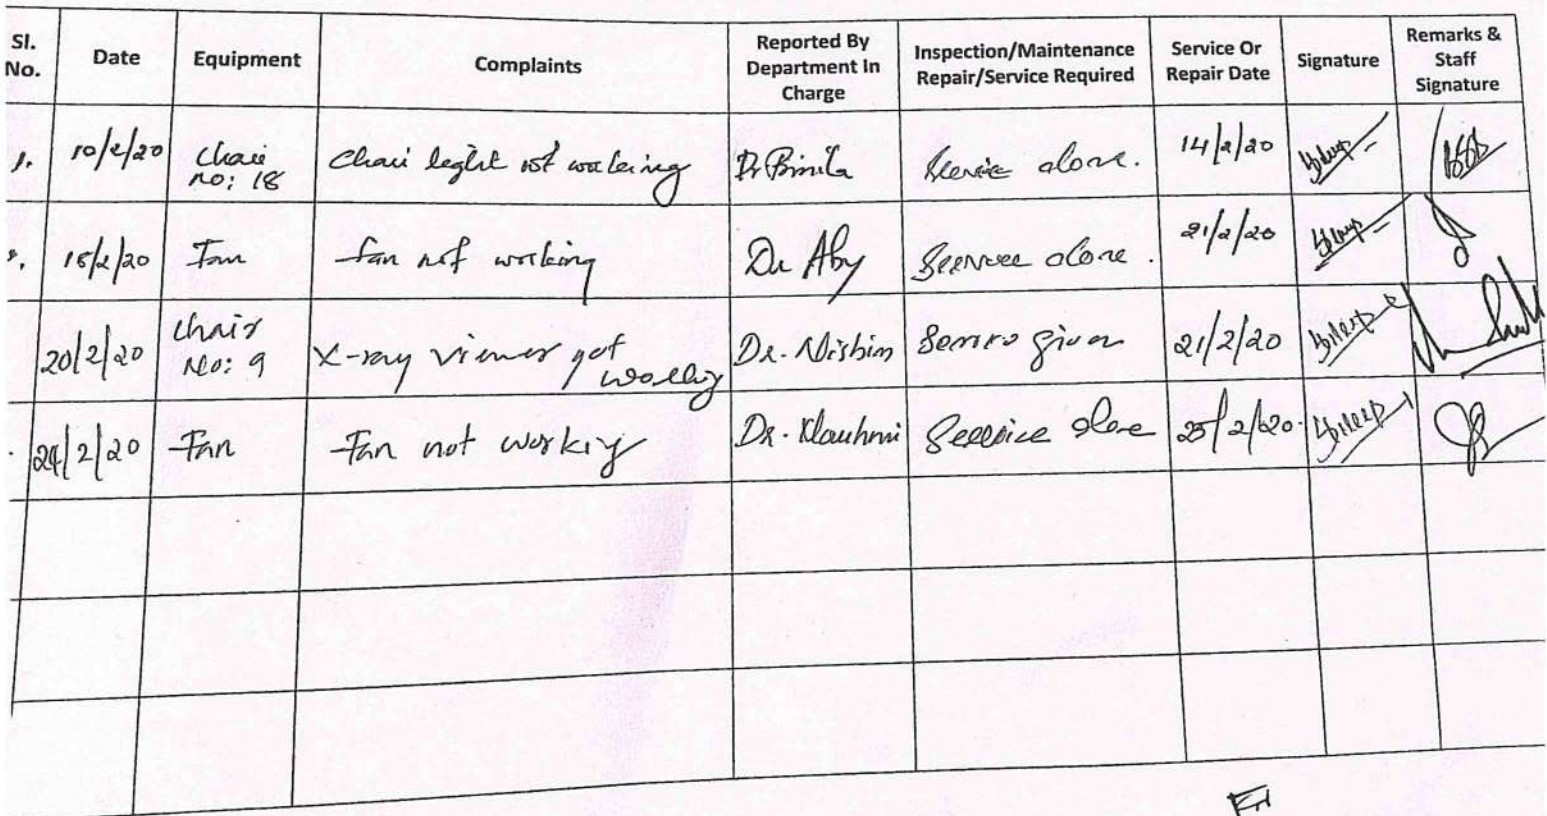 Sl. No. Date Equipment Complaints Reported By Department In Charge Inspection/Maintenance Repair/Service Required Service Or Repair Date Signature Remarks & Staff Signature
1. 10/2/20 Chair no: 18 Chair light not working Dr Binila Service done. 14/2/20
18/2/20 Fan fan not working Dr Aby Service done. 21/2/20
20/2/20 Chair No: 9 X-ray viewer not working Dr. Nishim Service given 21/2/20
24/2/20 Fan Fan not working Dr. Service done 25/2/20